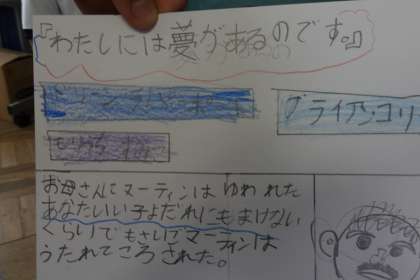 『わたしには夢があるのです。』
ブライアン・コリ
お母さんにマーティンは ゆわ れた
あなたいい子よだれにもまけない
くらいで もさいごマーティンは
うたれてころされた。